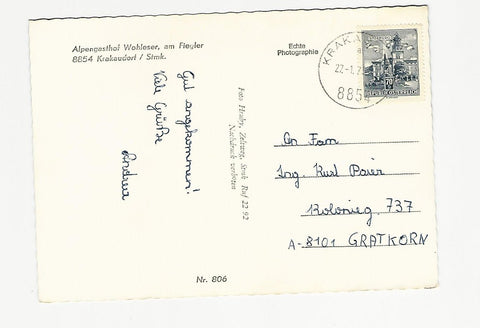 Alpengasthof Wohleser, am Fiegler
8854 Krakaudorf / Stmk.
Echte
Photographie
8854
Gut angekommen!
Viele Grüße
Andrea
Foto Hruby, Zeltweg, Stmk Ruf 22 92
Nachdruck verboten
An Fam
Ing. Kurt Baier
Kolonieg. 737
A-8101 GRATKORN
Nr. 806